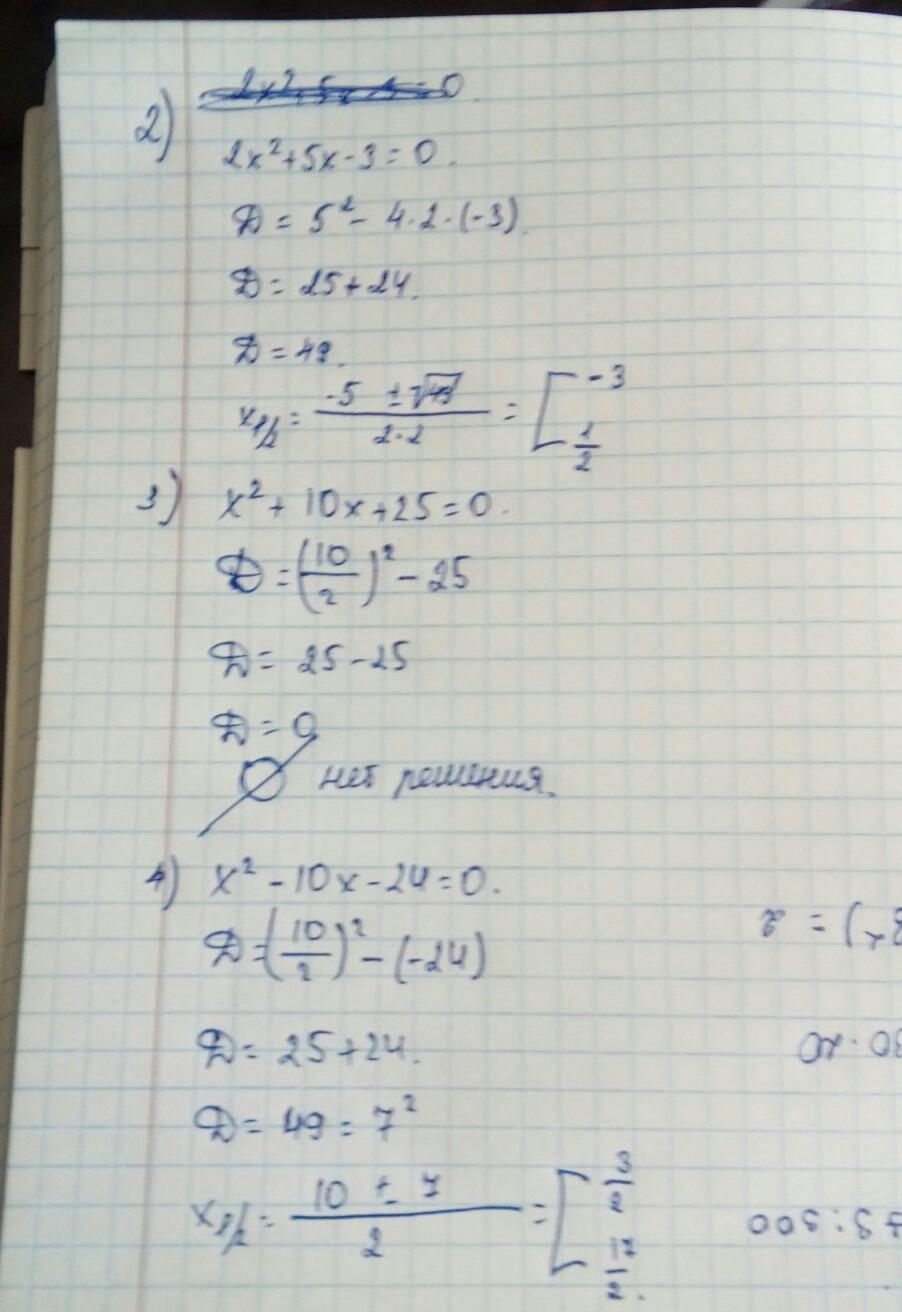 2) 2x²+5x-3=0.
D = 5² - 4·2·(-3)
D = 25+24.
D = 49.
x₁/₂ = (-5 ± √49)/(2·2) = [ -3
1/2
3) x² + 10x + 25 = 0.
D = (10/2)² - 25
D = 25 - 25
D = 0
∅ нет решения.
4) x² - 10x - 24 = 0.
D = (10/2)² - (-24)
D = 25 + 24.
D = 49 = 7²
x₁/₂ = (10 ± 7)/2 = [ 3/2
17/2.